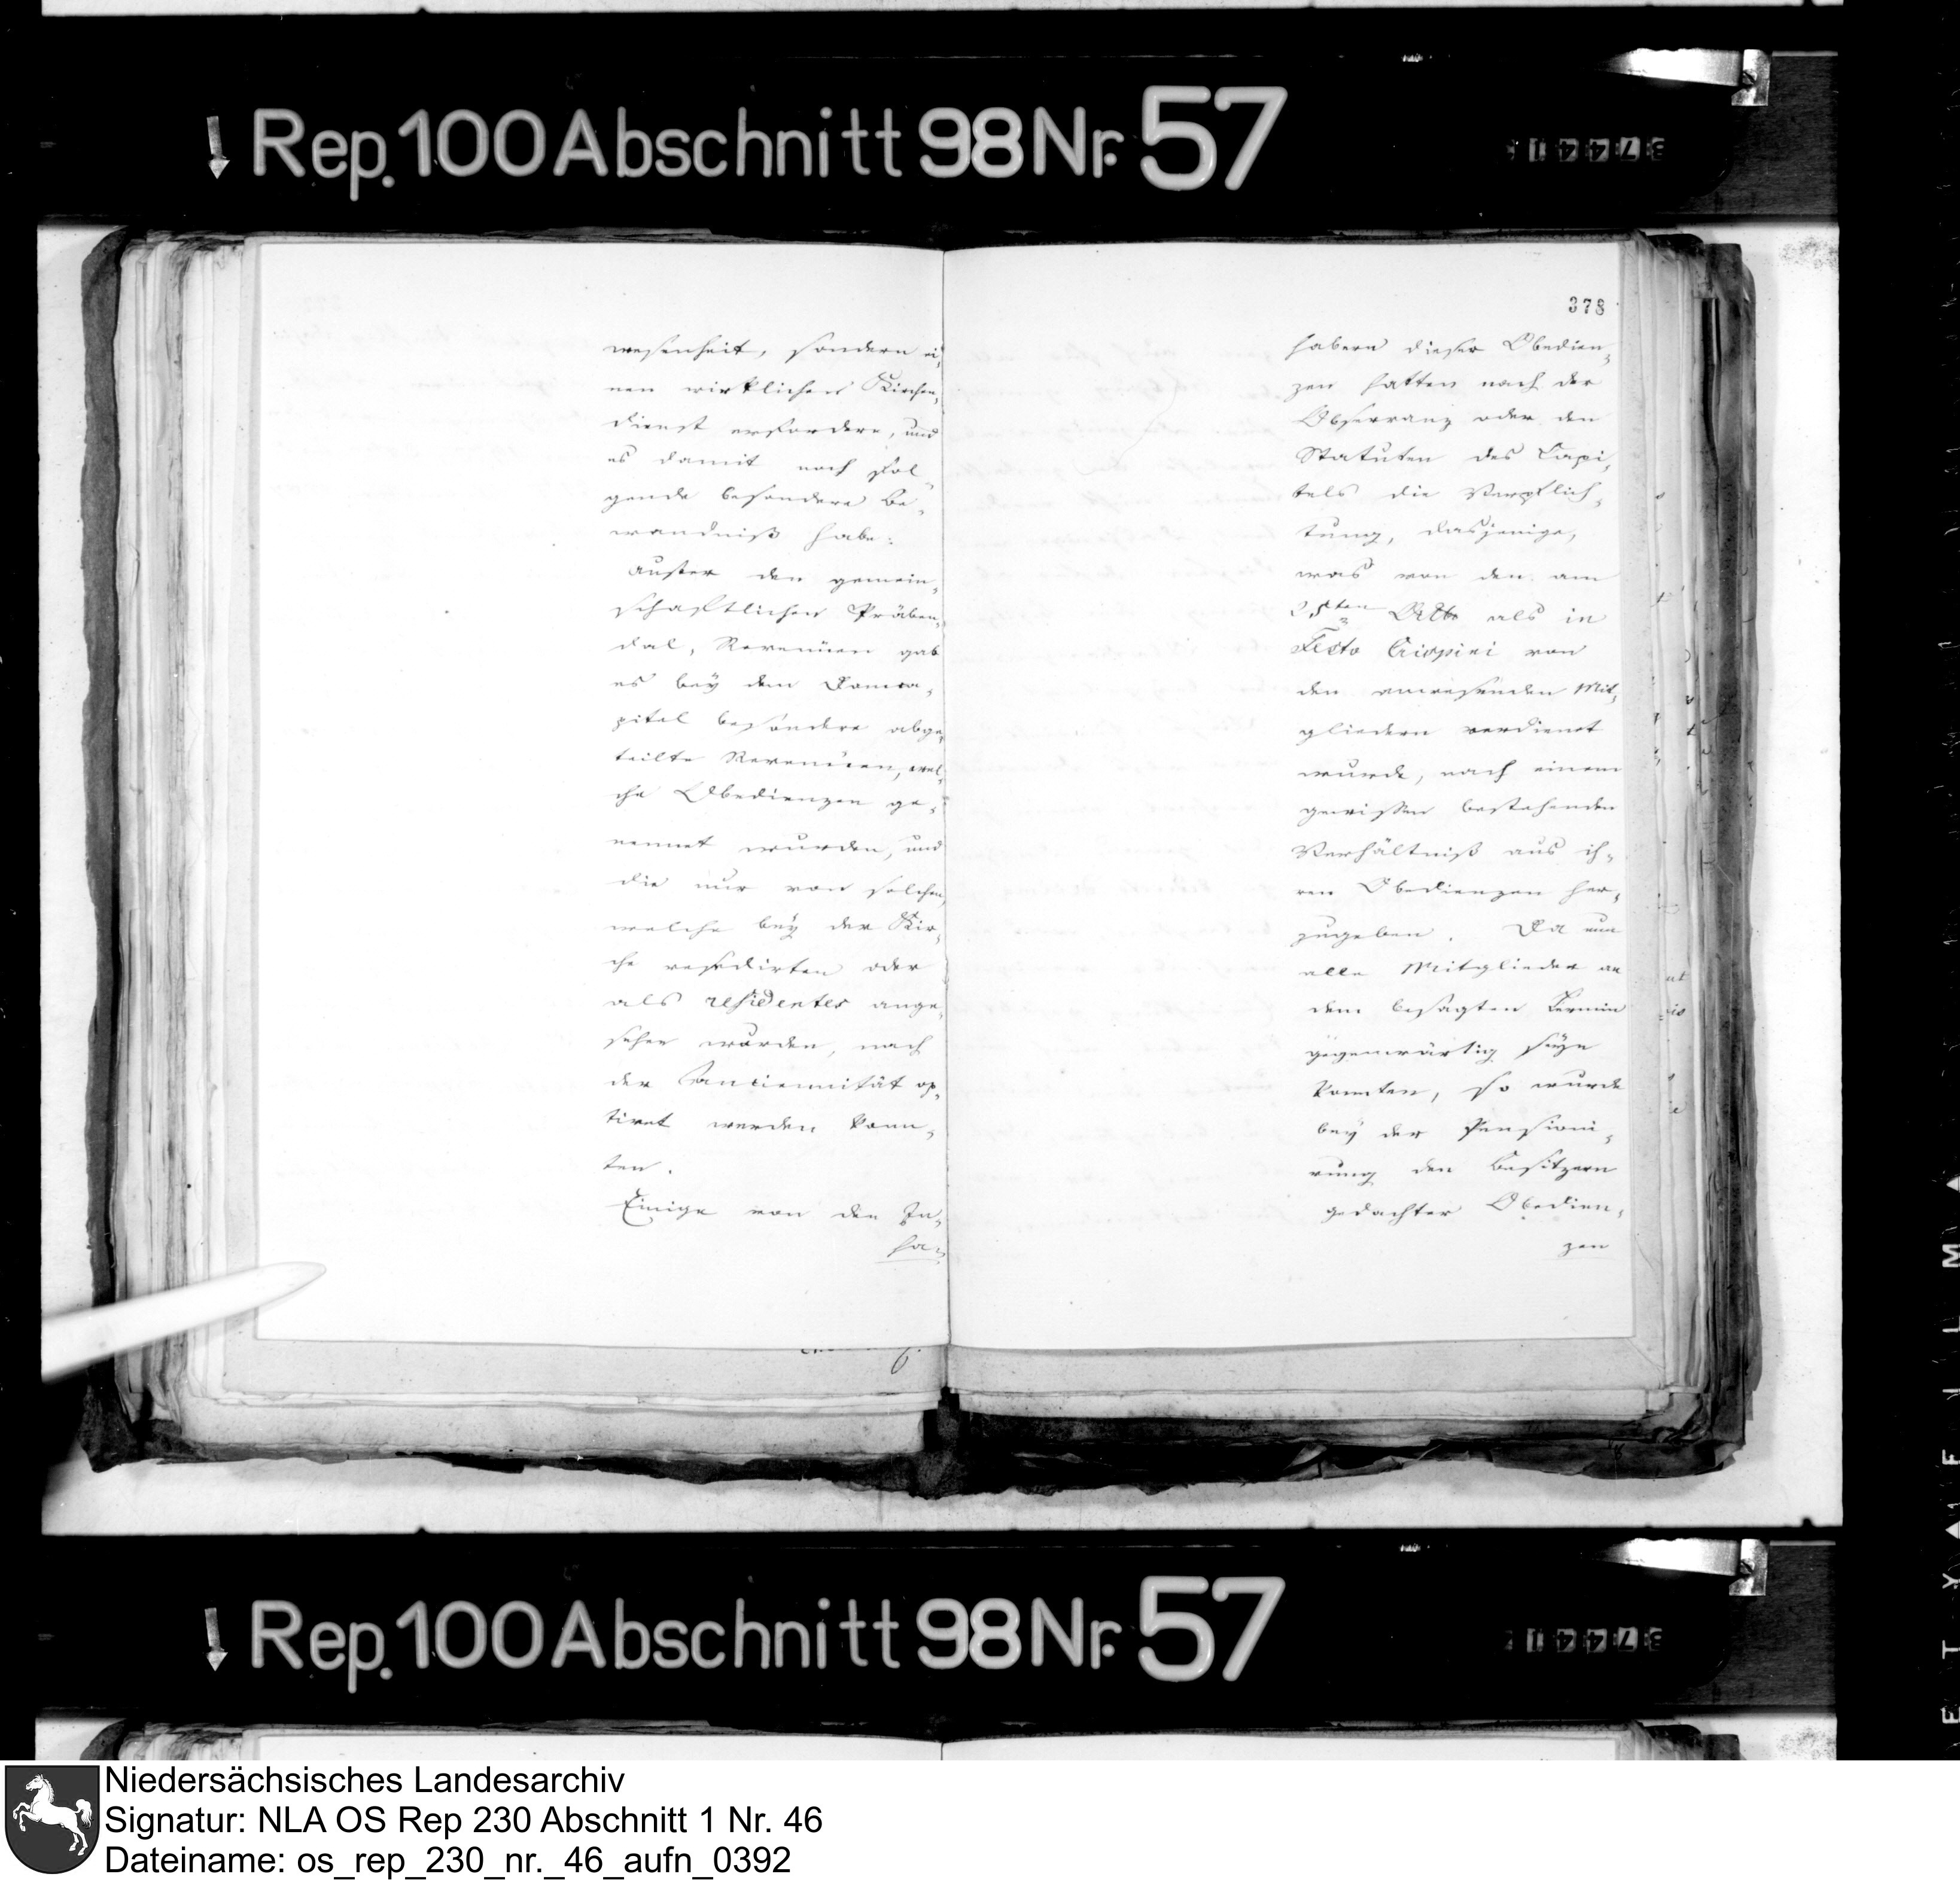 Rep. 100 Abschnitt 98 Nr. 57
wesenheit, sondern ei,
nen wirklichen Kirchen,
dienst erfordere, und
es damit noch fol,
gende besondere Be,
wandniß habe:
Ausser den gemein,
schaftlichen Präben,
dal, Revenüen gab
es bey dem Domca,
pitel besondere abge,
teilte Revenüen, wel,
che Obedienzen ge,
nennet wurden, und
die nur von solchen,
welche bey der Kir,
che residirten oder
als residentes ange,
sehen wurden, nach
der Anciennität op,
tiret werden konn,
ten.
Einige von den In,
ha,
378
habern dieser Obedien,
zen hatten nach der
Observanz oder den
Statuten des Capi,
tels die Verpflich,
tung, dasjenige,
was von den am
25ten als in
Festo Crispini von
den anwesenden Mit,
gliedern verdienet
wurde, nach einem
gewissen bestehenden
Verhältniß aus ih,
ren Obedienzen her,
zugeben. Da nun
alle Mitglieder an
dem besagten Termin
gegenwärtig seyn
konnten, so wurde
bey der Pensioni,
rung den Besitzern
gedachter Obedien,
zen
Rep. 100 Abschnitt 98 Nr. 57
Niedersächsisches Landesarchiv
Signatur: NLA OS Rep 230 Abschnitt 1 Nr. 46
Dateiname: os_rep_230_nr._46_aufn_0392